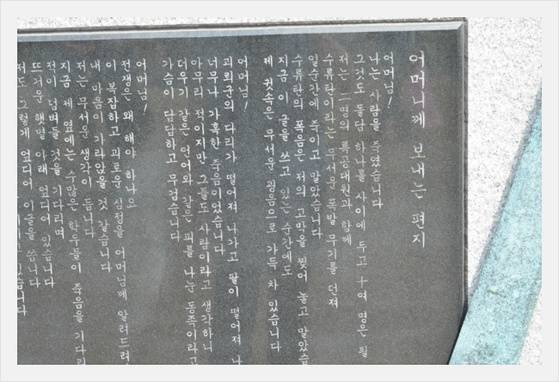 어머니께 보내는 편지
어머님!
나는 사람을 죽였습니다
그것도 돌담 하나를 사이에 두고 十여 명은 될
저는 二명의 특공대원과 함께
수류탄이라는 무서운 폭발 무기를 던져
일순간에 죽이고 말았습니다
수류탄의 폭음은 저의 고막을 찢어 놓고 말았습니다
지금 이 글을 쓰고 있는 순간에도
제 귓속은 무서운 굉음으로 가득 차 있습니다
어머님!
괴뢰군의 다리가 떨어져 나가고 팔이 떨어져 나
너무나 가혹한 죽음이었습니다
아무리 적이지만 그들도 사람이라고 생각하니
더우기 같은 언어와 같은 피를 나눈 동족이라고
가슴이 답답하고 무겁습니다
어머님!
전쟁은 왜 해야 하나요
이 복잡하고 괴로운 심정을 어머님께 알려드려야
내 마음이 가라앉을 것 같습니다
저는 무서운 생각이 듭니다
지금 제 옆에는 수많은 학우들이 죽음을 기다리
적이 덤벼들 것을 기다리며
뜨거운 햇빛 아래 엎디어 있습니다
저도 그렇게 엎디어 이 글을 씁니다